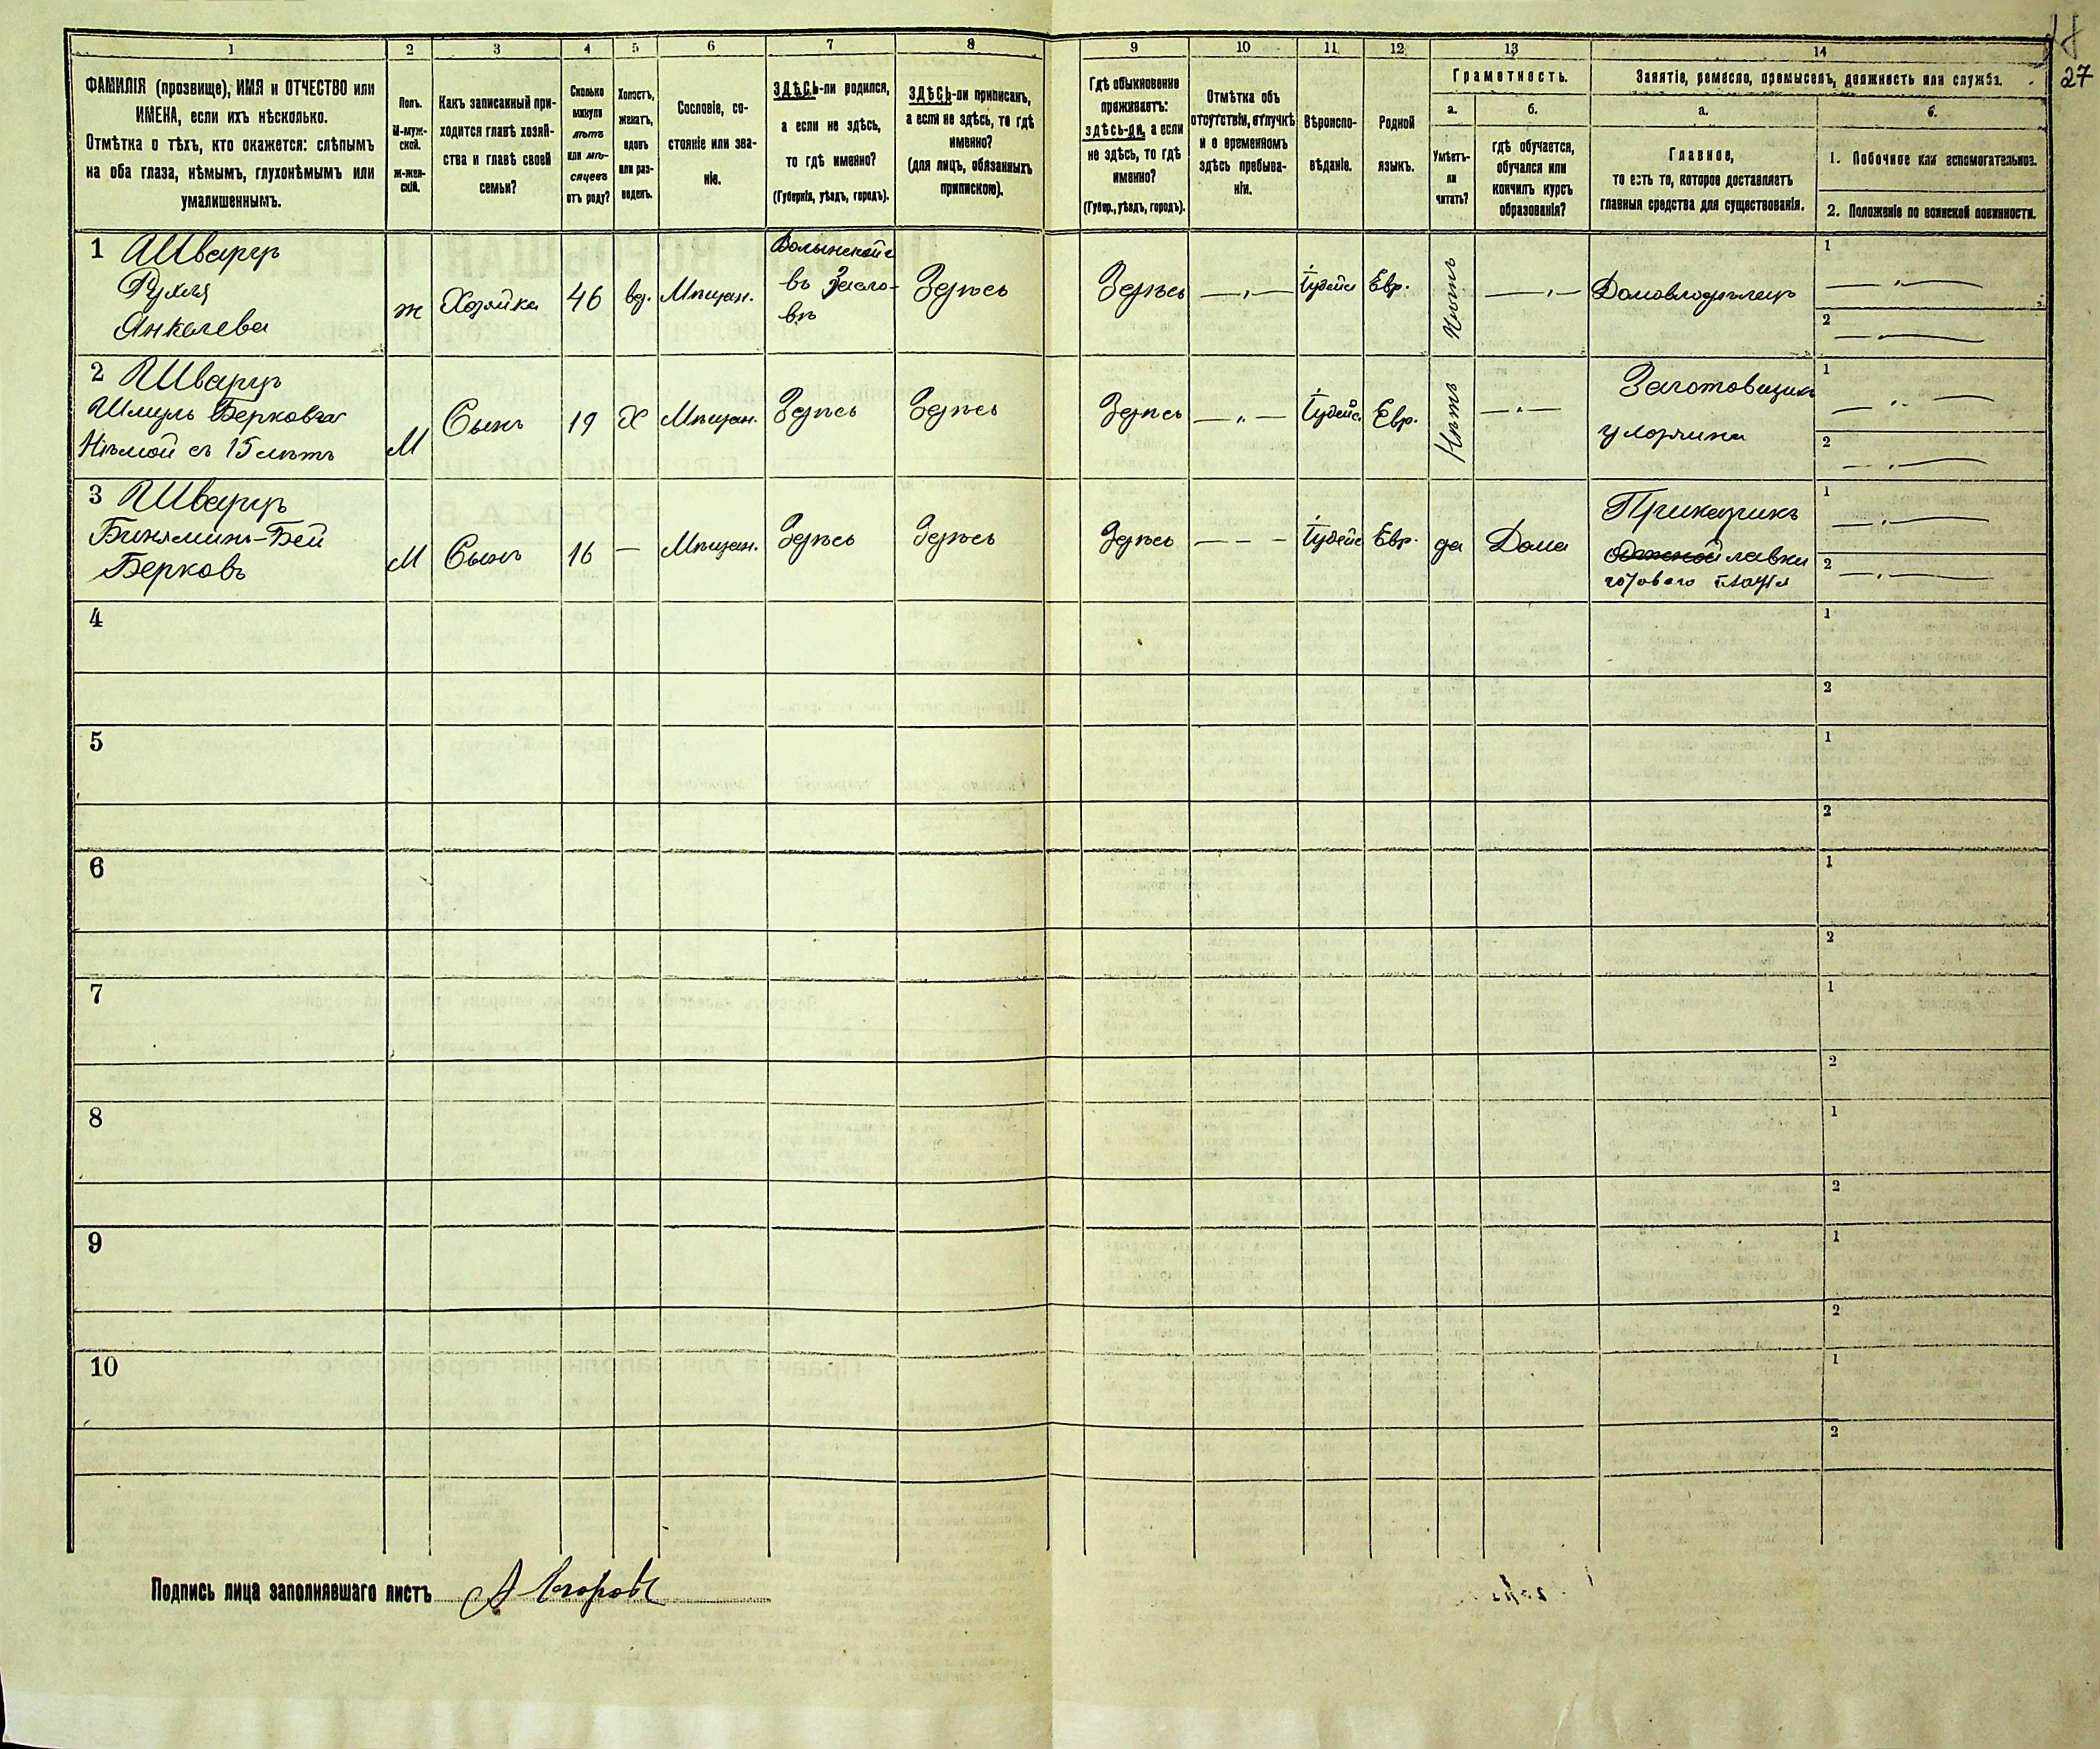 18
27
1 2 3 4 5 6 7 8 9 10 11 12 13 14
ФАМИЛІЯ (прозвище), ИМЯ и ОТЧЕСТВО или
ИМЕНА, если ихъ нѣсколько.
Отмѣтка о тѣхъ, кто окажется: слѣпымъ
на оба глаза, нѣмымъ, глухонѣмымъ или
умалишеннымъ.
Полъ.
М-муж-
ской.
Ж-жен-
скій.
Какъ записанный при-
ходится главѣ хозяй-
ства и главѣ своей
семьи?
Сколько
минуло
лѣтъ
или мѣ-
сяцевъ
отъ роду?
Холостъ,
женатъ,
вдовъ
или раз-
веденъ.
Сословіе, со-
стояніе или зва-
ніе.
ЗДѢСЬ-ли родился,
а если не здѣсь,
то гдѣ именно?
(Губернія, уѣздъ, городъ).
ЗДѢСЬ-ли приписанъ,
а если не здѣсь, то гдѣ
именно?
(для лицъ, обязанныхъ
припискою).
Гдѣ обыкновенно
проживаетъ:
здѣсь-ли, а если
не здѣсь, то гдѣ
именно?
(Губер., уѣздъ, городъ).
Отмѣтка объ
отсутствіи, отлучкѣ
и о временномъ
здѣсь пребыва-
ніи.
Вѣроиспо-
вѣданіе.
Родной
языкъ.
Грамотность.
а.
Умѣетъ-
ли
читать?
б.
гдѣ обучается,
обучался или
кончилъ курсъ
образованія?
Занятіе, ремесло, промыселъ, должность или служба.
а.
Главное,
то есть то, которое доставляетъ
главныя средства для существованія.
б.
1. Побочное или вспомогательное.
2. Положеніе по воинской повинности.
1 Шварцъ
Рухля
Янкелева
ж
Хозяйка
46
вд.
Мѣщан.
Волынской г
въ Засла-
вѣ
Здѣсь
Здѣсь
Іудейс
Евр.
Нѣтъ
Домовладѣлецъ
1
2
2 Шварцъ
Шмуль Берковъ
Нѣмой съ 15 лѣтъ
М
Сынъ
19
Х
Мѣщан.
Здѣсь
Здѣсь
Здѣсь
Іудейс.
Евр.
Нѣтъ
Заготовщикъ
1
2
3 Шварцъ
Биньяминъ-Бей
Берковъ
М
Сынъ
16
Мѣщан.
Здѣсь
Здѣсь
Здѣсь
Іудейс
Евр.
да
Дома
Приказчикъ
лавки
готового платья
1
2
4
1
2
5
1
2
6
1
2
7
1
2
8
1
2
9
1
2
10
1
2
Подпись лица заполнявшаго листъ